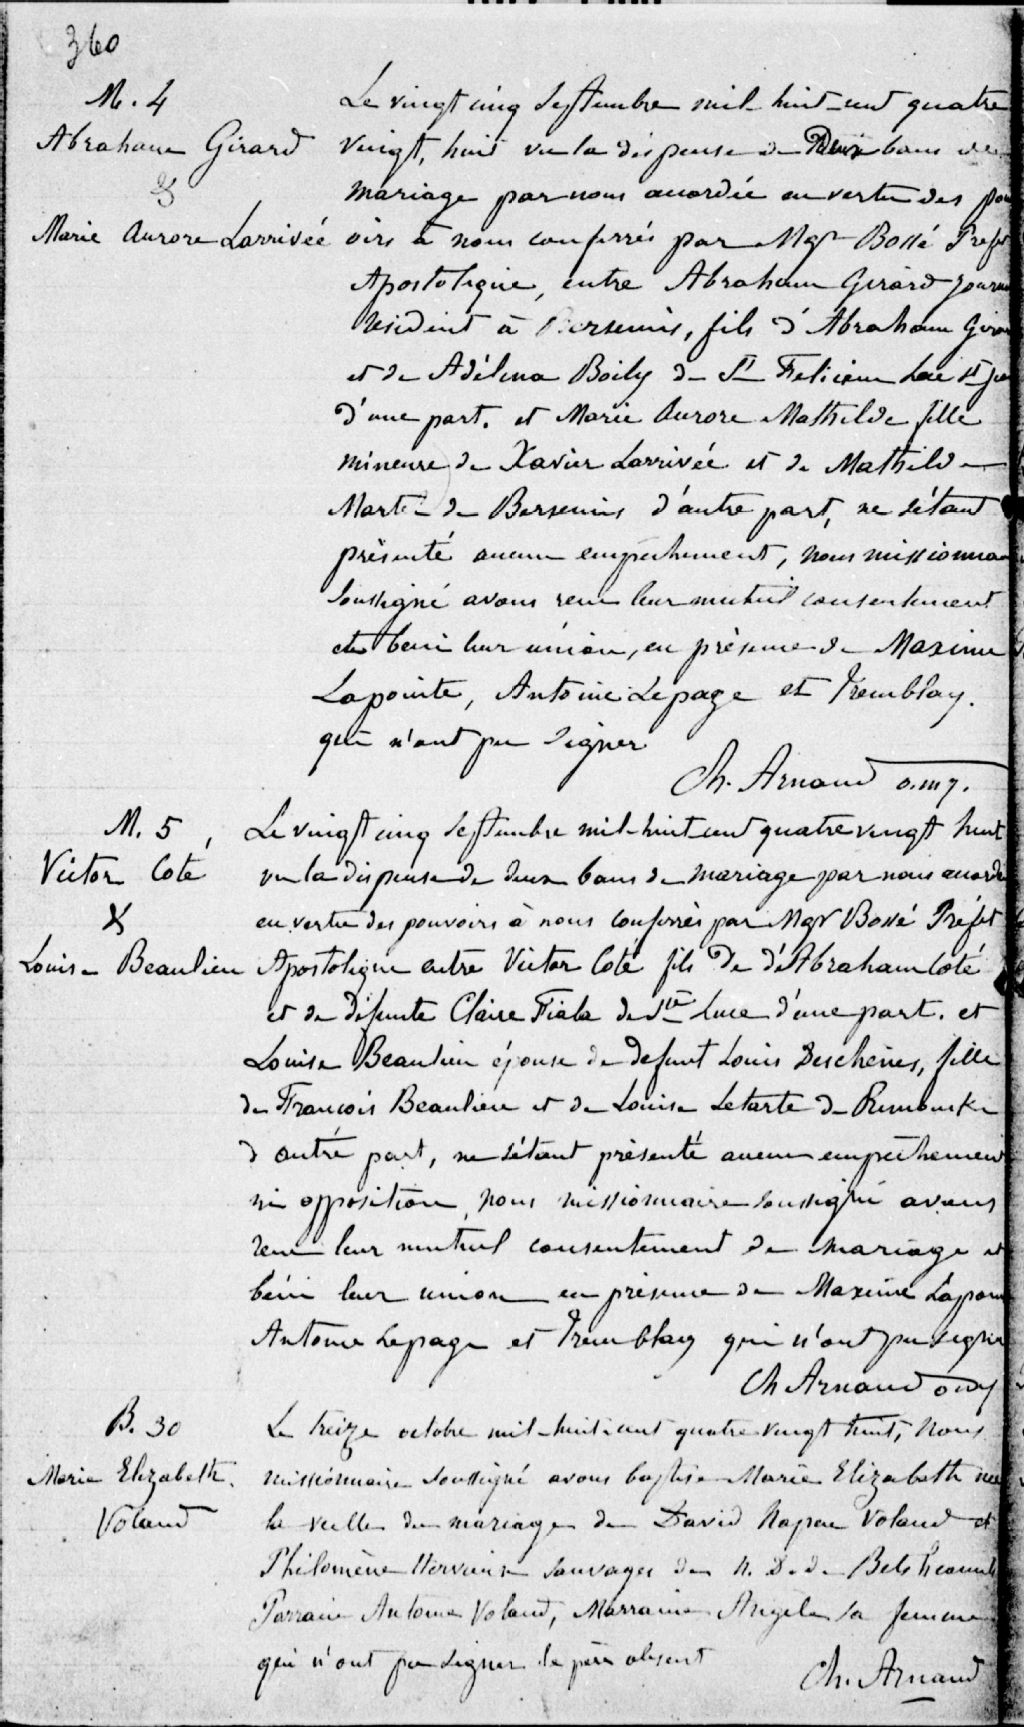 360
M. 4
Abraham Girard
&
Marie Aurore Larrivéé
Le vingt cinq Septembre mil huit cent quatre
vingt, huit vu la dispense de Deux bans de
mariage par nous accordée en vertu des pou
oirs à nous conferrés par Mgr Bossé Préfet
Apostolique, entre Abraham Girard journ
résident à Bersimis, fils d'Abraham Girar
et de Adélina Boily de St Felicien Lac St Je
d'une part. et Marie Aurore Mathilde fille
mineure de Xavier Larrivéé et de Mathilde
Marte de Bersimis d'autre part, ne s'étant
présenté aucun empêchement, nous missionna
soussigné avons recu leur mutuel consentement
et beni leur union, en présence de Maxime
Lapointe, Antoine Lepage et Tremblay.
qui n'ont pu signer
Ch. Arnaud o.m.j.
M. 5
Victor Coté
&
Louise Beaulieu
Le vingt cinq Septembre mil-huit cent quatre vingt huit
vu la dispense de deux bans de mariage par nous accordé
en vertu des pouvoirs à nous conferrés par Mgr Bossé Préfet
Apostolique entre Victor Coté fils De d'Abraham Coté
et de défunte Claire Fiala de Ste Luce d'une part. et
Louise Beaulieu épouse de defunt Louis Deschènes, fille
de Francois Beaulieu et de Louise Letarte de Rimouski
d'autre part, ne s'étant présenté aucun empêchement
ni opposition, nous missionnaire soussigné avons
recu leur mutuel consentement de mariage et
béni leur union en présence de Maxime Lapoin
Antoine Lepage et Tremblay qui n'ont pu signer
Ch Arnaud omj
B. 30
Marie Elizabeth
Voland
Le treize octobre mil-huit-cent quatre vingt huit, Nous
missionnaire soussigné avons baptisé Marie Elizabeth née
la veille du mariage de David Napeu Voland et
Philomène Hervieux sauvages de N. D. de Betshiamits
Parrain Antoine Voland, Marraine Angèle sa femme
qui n'ont pu signer le père absent
Ch. Arnaud